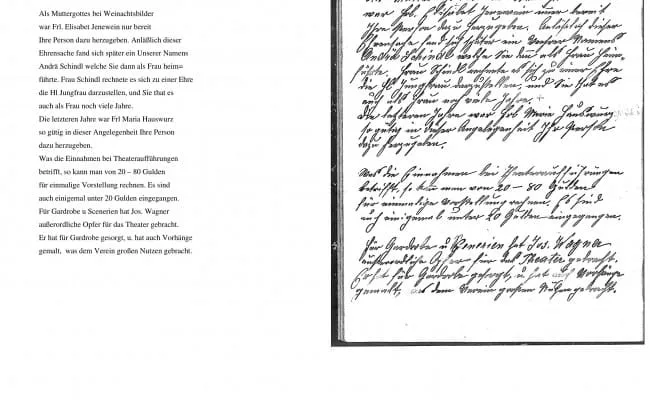 Als Muttergottes bei Weinachtsbilder
war Frl. Elisabet Jenewein nur bereit
Ihre Person dazu herzugeben. Anläßlich dieser
Ehrensache fand sich später ein Unserer Namens
Andrä Schindl welche Sie dann als Frau heim=
führte. Frau Schindl rechnete es sich zu einer Ehre
die Hl Jungfrau darzustellen, und Sie that es
auch als Frau noch viele Jahre.
Die letzteren Jahre war Frl Maria Hauswurz
so gütig in dieser Angelegenheit Ihre Person
dazu herzugeben.
Was die Einnahmen bei Theateraufführungen
betrifft, so kann man von 20 – 80 Gulden
für einmalige Vorstellung rechnen. Es sind
auch einigemal unter 20 Gulden eingegangen.
Für Gardrobe u Scenerien hat Jos. Wagner
außerordliche Opfer für das Theater gebracht.
Er hat für Gardrobe gesorgt, u. hat auch Vorhänge
gemalt, was dem Verein großen Nutzen gebracht.
war Frl. Elisabet Jenewein nur bereit
Ihre Person dazu herzugeben. Anläßlich dieser
Ehrensache fand sich später ein Namens
Andrä Schindl welche Sie dann als Frau heim=
führte. Frau Schindl rechnete es sich zu einer Ehre
die Hl Jungfrau darzustellen, und Sie that es
auch als Frau noch viele Jahre.
Die letzteren Jahre war Frl Maria Hauswurz
so gütig in dieser Angelegenheit Ihre Person
dazu herzugeben.
Was die Einnahmen bei Theateraufführungen
betrifft, so kann man von 20 – 80 Gulden
für einmalige Vorstellung rechnen. Es sind
auch einigemal unter 20 Gulden eingegangen.
Für Gardrobe u Scenerien hat Jos. Wagner
außerordliche Opfer für das Theater gebracht.
Er hat für Gardrobe gesorgt, u hat auch Vorhänge
gemalt, was dem Verein großen Nutzen gebracht.